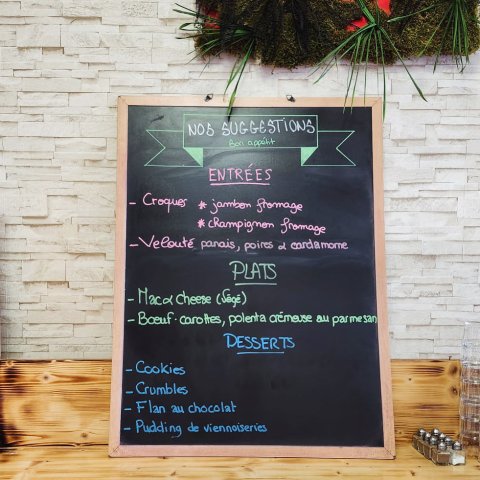 NOS SUGGESTIONS
Bon appétit
ENTRÉES
- Croques * jambon fromage
* champignon fromage
- Velouté panais, poires & cardamome
PLATS
- Mac & cheese (végé)
- Bœuf-carottes, polenta crémeuse au parmesan
DESSERTS
- Cookies
- Crumbles
- Flan au chocolat
- Pudding de viennoiseries